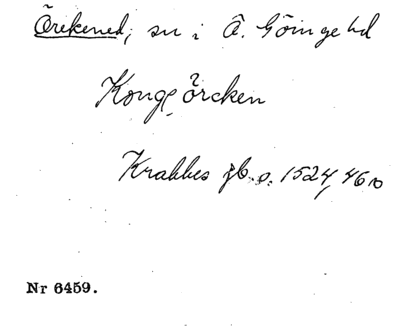 Örekened, sn i Ö. Göinge hd
Konge örcken
Krabbes jb. s. 1524, 46
Nr 6459.